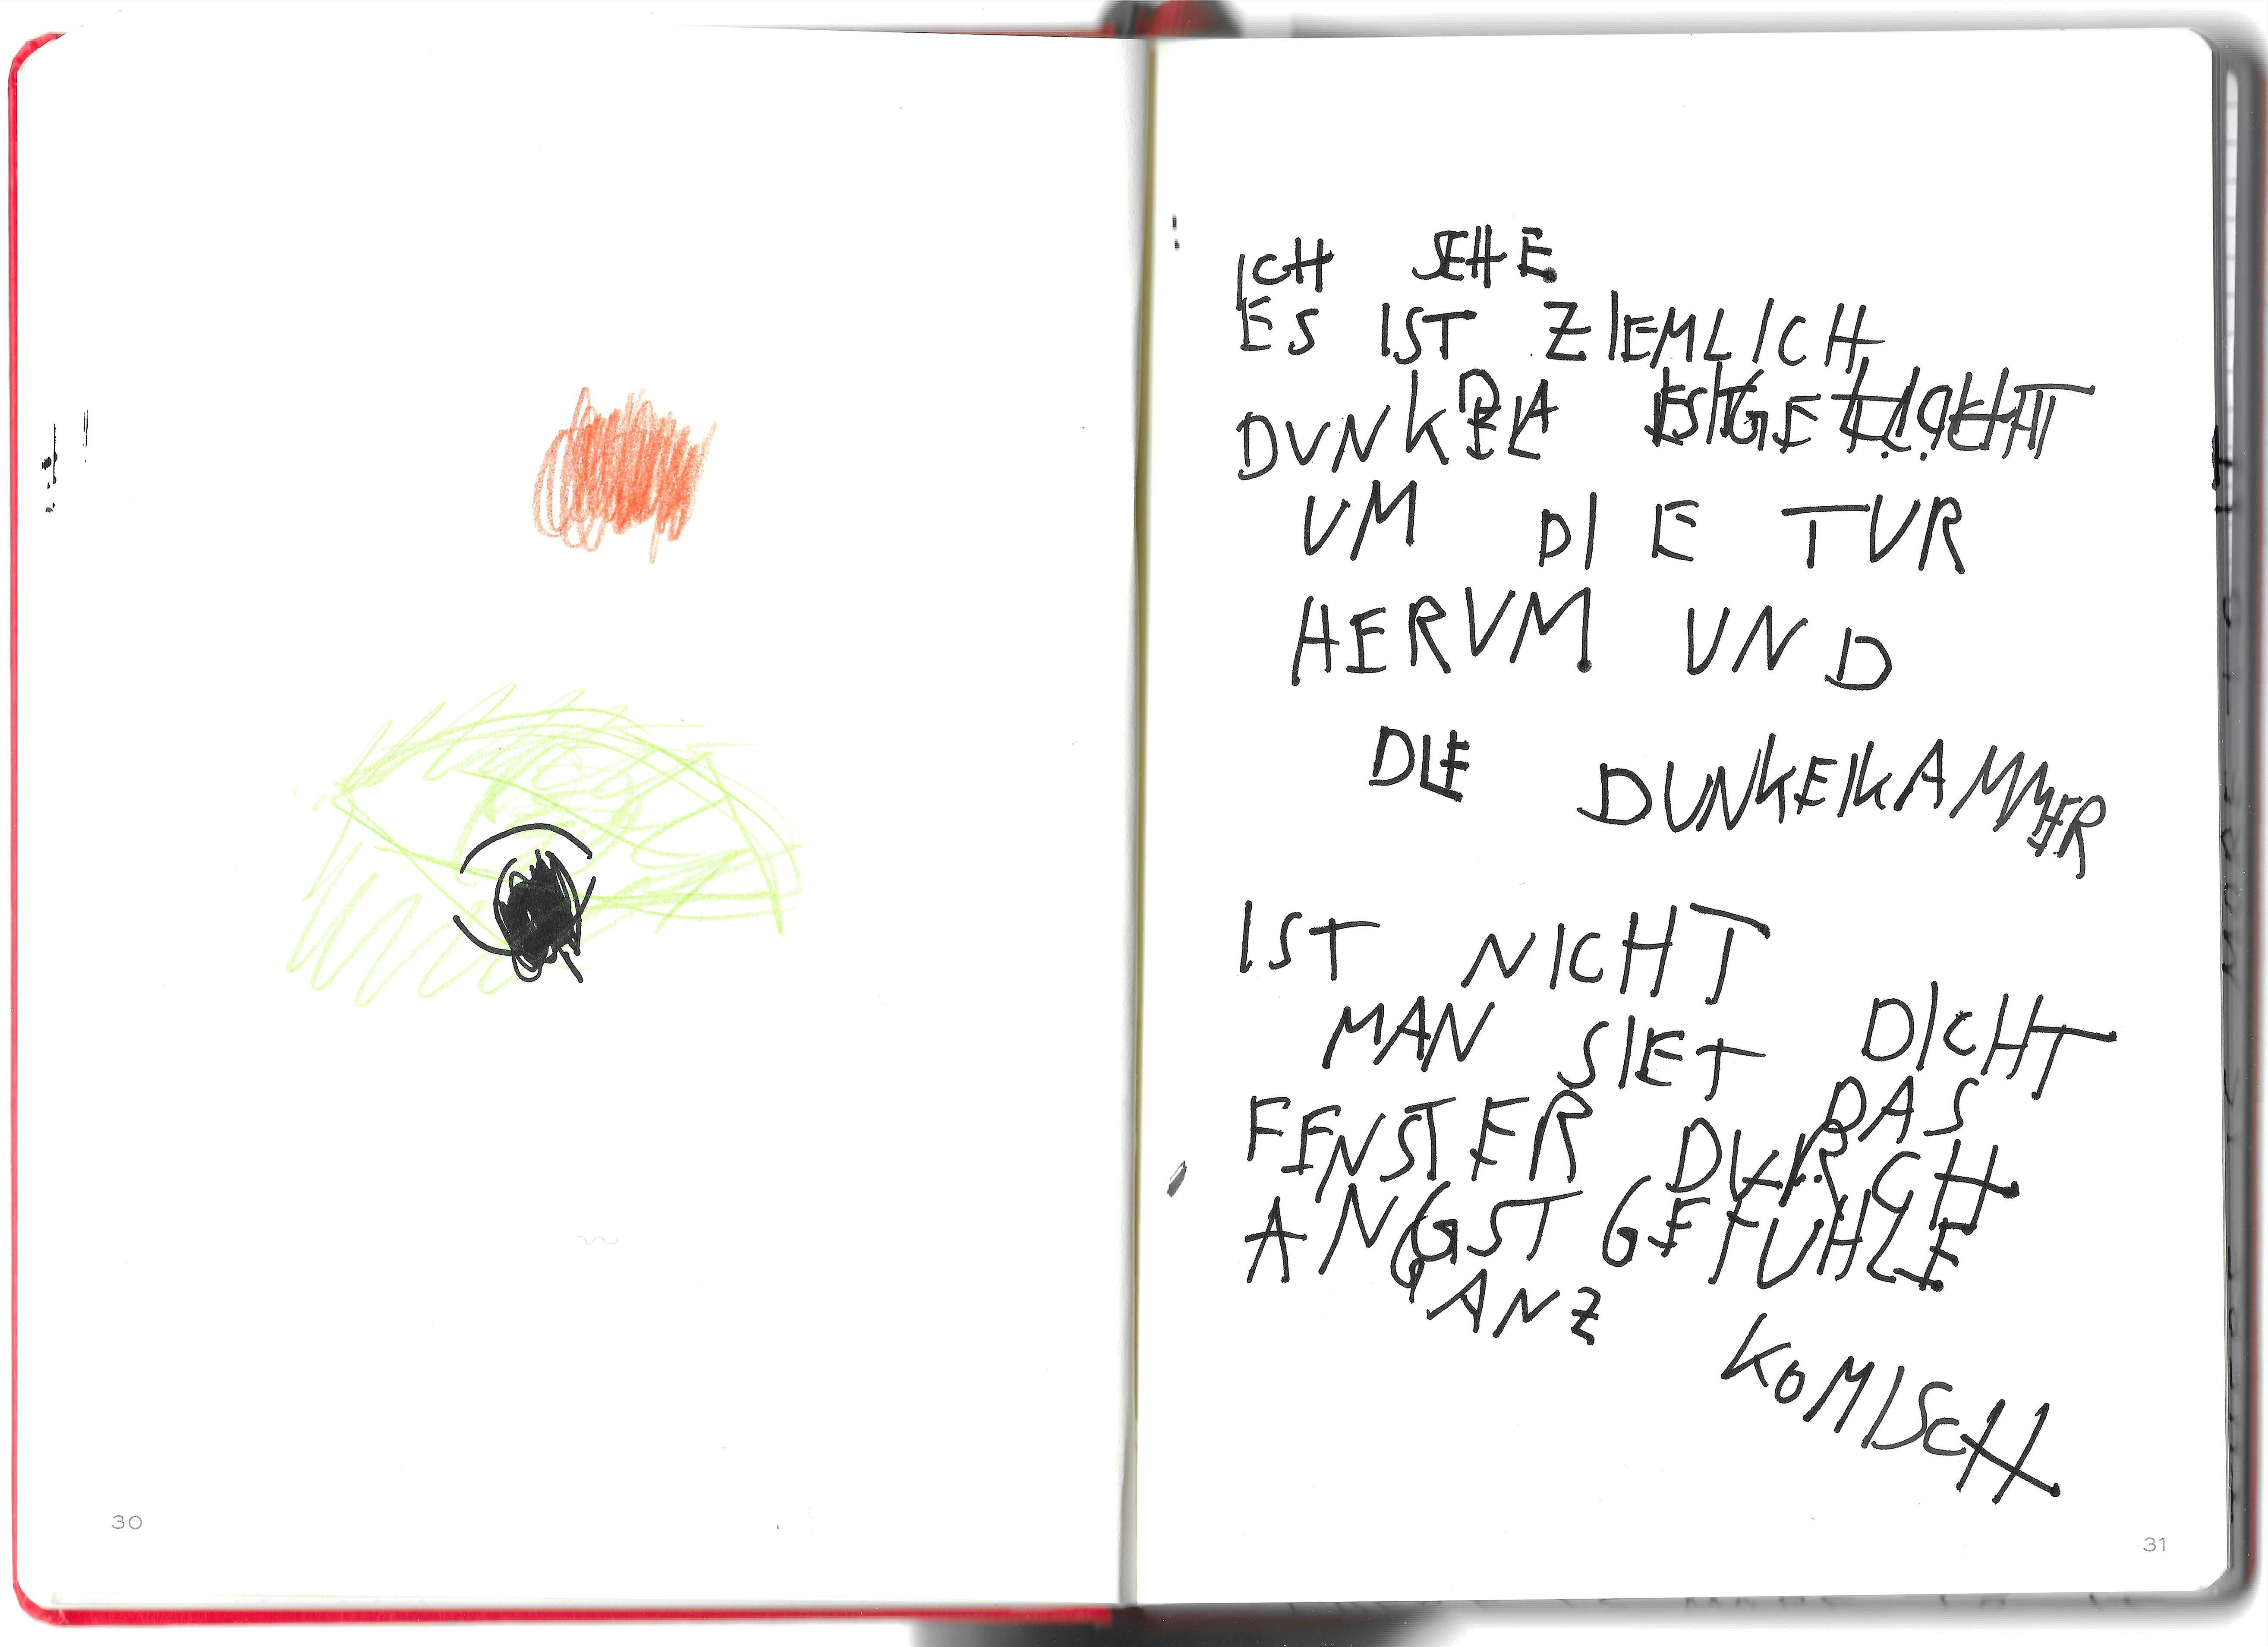 ICH SEHE
ES IST ZIEMLICH
DUNKEL DA IST LICHT
UM DIE TUR
HERUM UND
DIE DUNKELKAMMER
IST NICHT DICHT
MAN SIET DAS
FENSTER DURCH
ANGSTGEFUHLE
GANZ KOMISCH
30
31